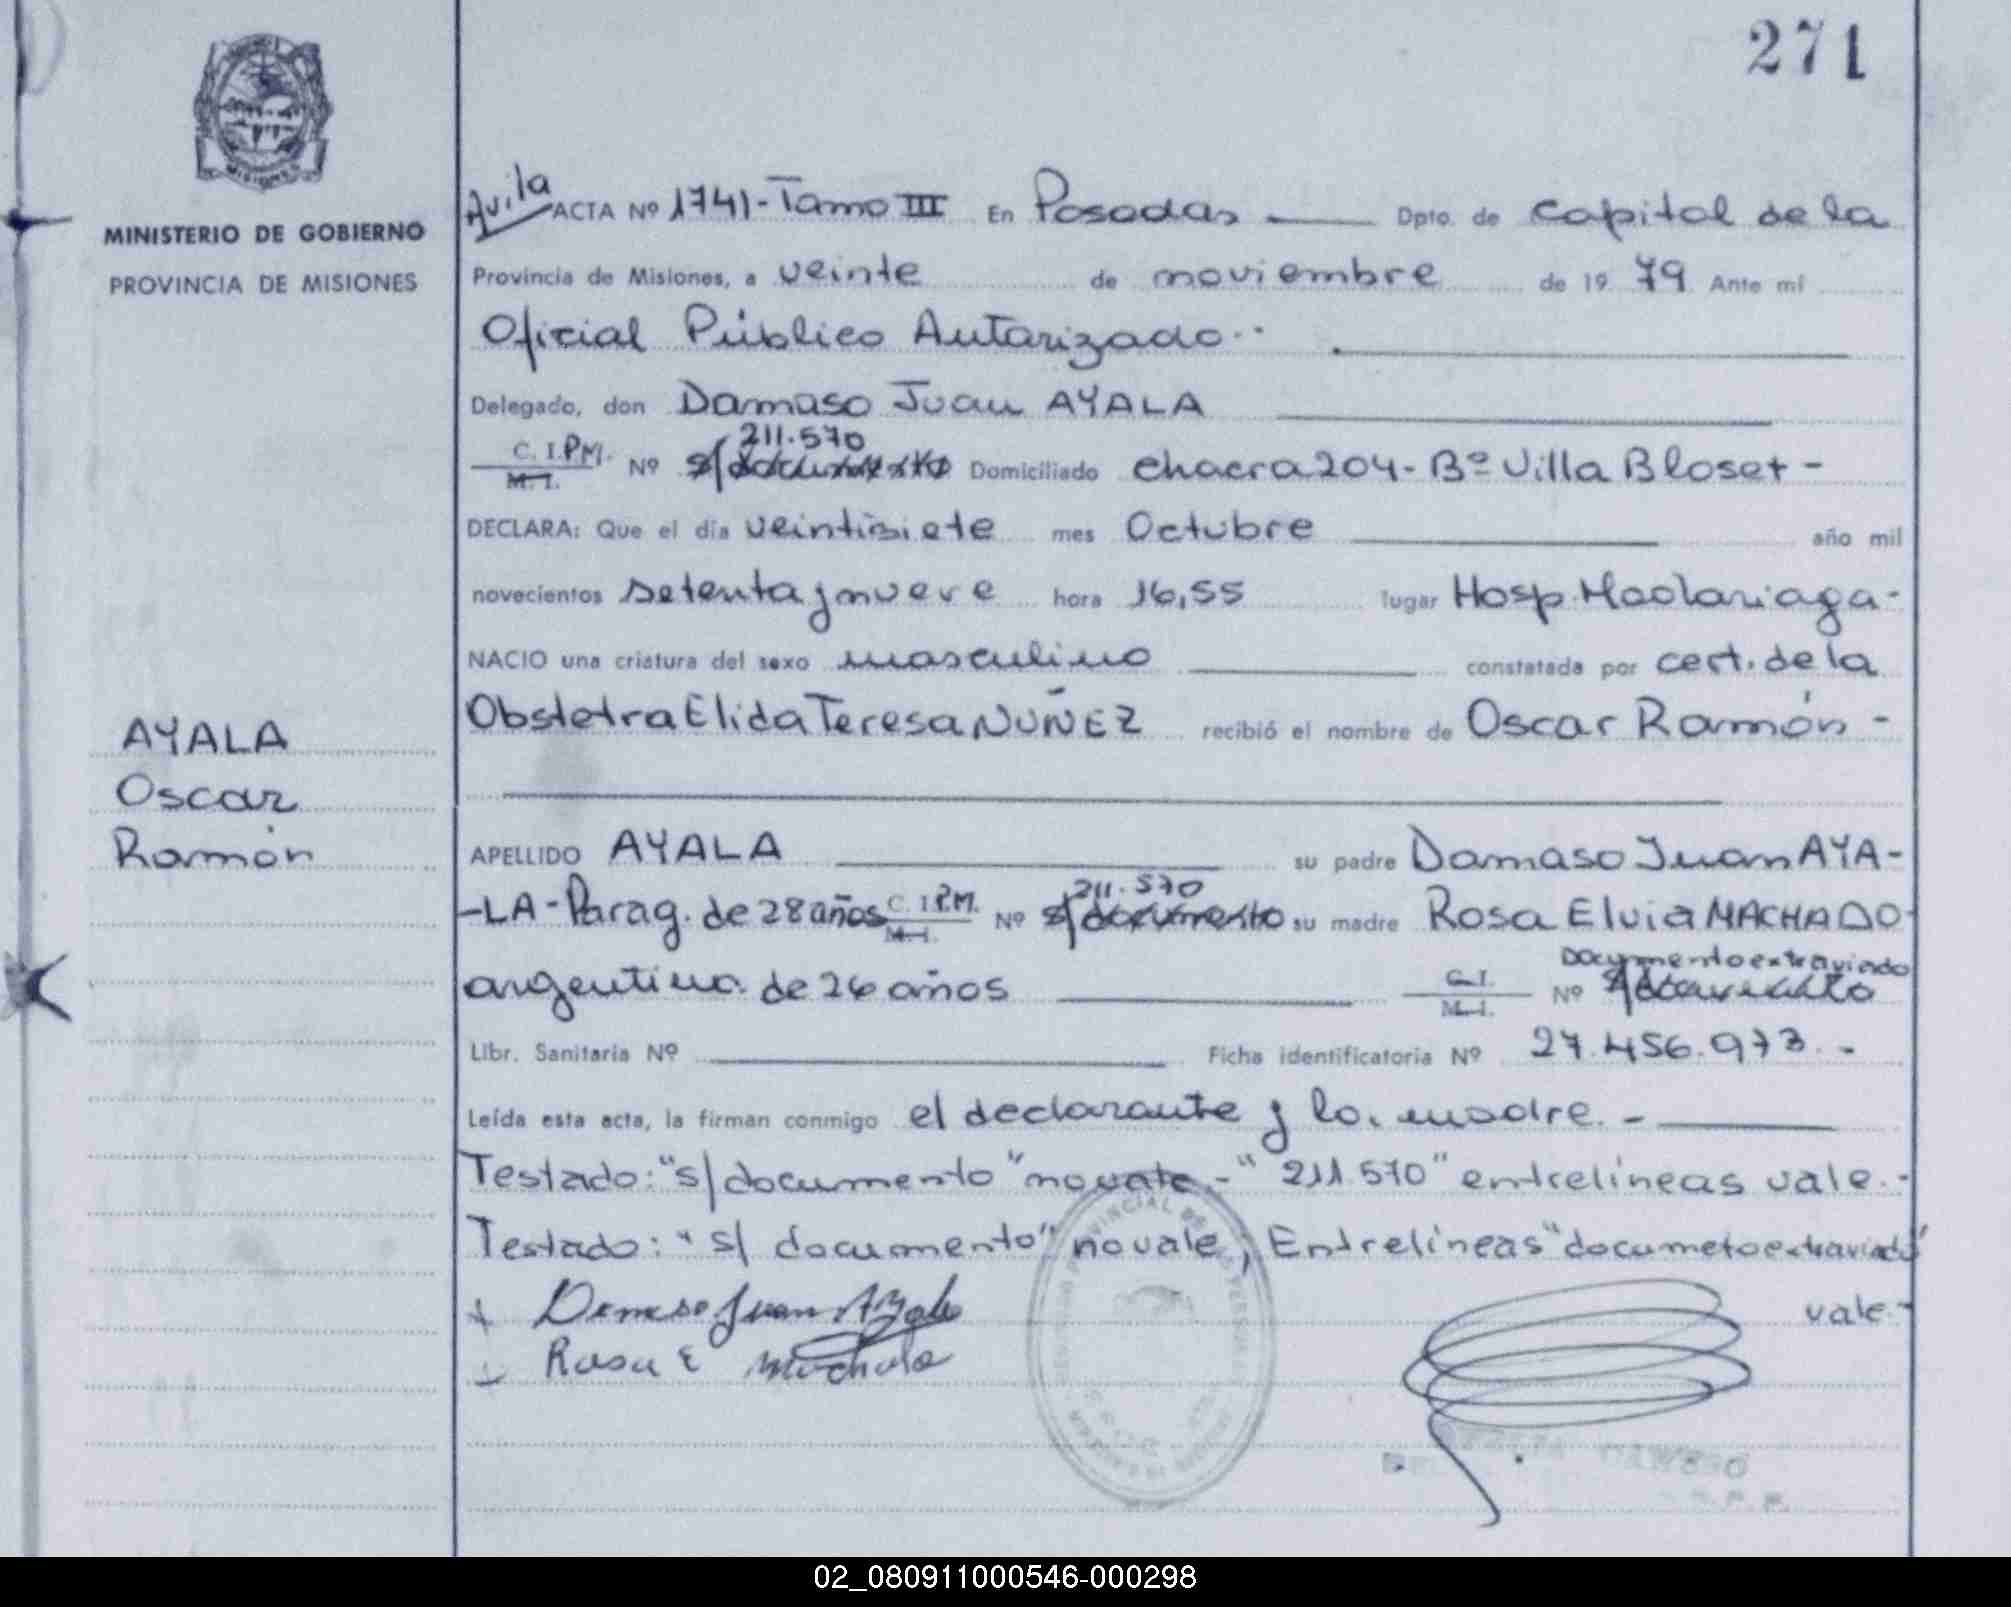 271
MISIONES
MINISTERIO DE GOBIERNO
PROVINCIA DE MISIONES
AYALA
Oscar
Ramón
Avila ACTA Nº 1741-Tomo III En Posadas Dpto. de Capital de la
Provincia de Misiones, a veinte de noviembre de 19 79 Ante mí
Oficial Público Autorizado.-
Delegado, don Damaso Juan AYALA
211.570
C. I.P.M. M. I. Nº s/documento Domiciliado chacra 204- Bº Villa Bloset -
DECLARA: Que el día veintisiete mes Octubre año mil
novecientos setenta y nueve hora 16,55 lugar Hosp. Madariaga-
NACIO una criatura del sexo masculino constatada por cert. de la
Obstetra Elida Teresa NUÑEZ recibió el nombre de Oscar Ramón -
APELLIDO AYALA su padre Damaso Juan AYA-
211.570
-LA-Parag. de 28 años C. I P.M. M. I. Nº s/documento su madre Rosa Elvia MACHADO
Documento extraviado
argentina de 26 años C. I. M. I. Nº s/documento
Libr. Sanitaria Nº Ficha identificatoria Nº 27.456.973.-
Leída esta acta, la firman conmigo el declarante y la madre.-
Testado: "s/documento" no vale - "211.570" entrelíneas vale.-
Testado: "s/ documento" no vale, Entrelíneas "documeto extraviado"
vale.-
Damaso Juan Ayala
Rosa E Machado
02_080911000546-000298